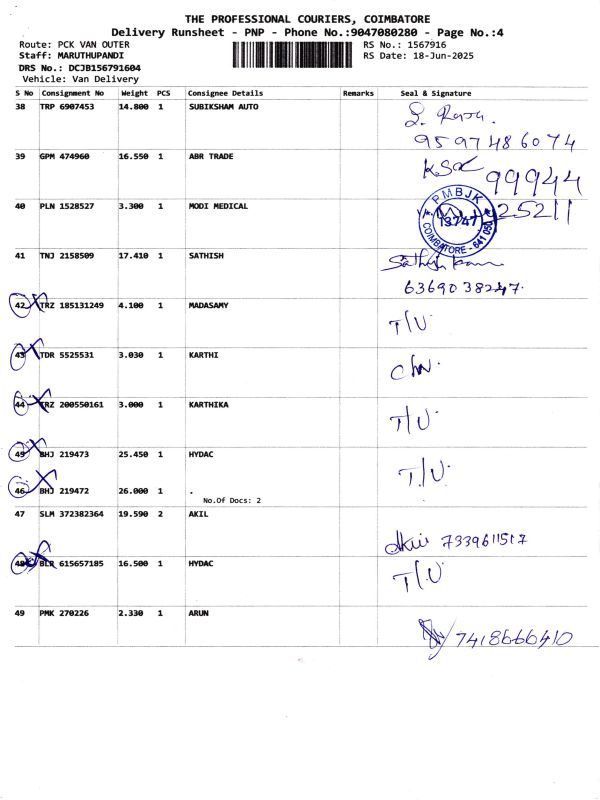 THE PROFESSIONAL COURIERS, COIMBATORE
Delivery Runsheet - PNP - Phone No.:9047080280 - Page No.:4
Route: PCK VAN OUTER RS No.: 1567916
Staff: MARUTHUPANDI RS Date: 18-Jun-2025
DRS No.: DCJB156791604
Vehicle: Van Delivery
S No Consignment No Weight PCS Consignee Details Remarks Seal & Signature
38 TRP 6907453 14.800 1 SUBIKSHAM AUTO
9597486074
39 GPM 474960 16.550 1 ABR TRADE
99944
40 PLN 1528527 3.300 1 MODI MEDICAL
25211
PMBJK
13747
COIMBATORE - 641 050
41 TNJ 2158509 17.410 1 SATHISH
6369038247.
42 TRZ 185131249 4.100 1 MADASAMY
T/U
43 TDR 5525531 3.030 1 KARTHI
44 TRZ 200550161 3.000 1 KARTHIKA
T/U
45 BHJ 219473 25.450 1 HYDAC
T/U
46 BHJ 219472 26.000 1 .
No.Of Docs: 2
47 SLM 372382364 19.590 2 AKIL
7339611517
48 BLR 615657185 16.500 1 HYDAC
T/U
49 PMK 270226 2.330 1 ARUN
7418666410